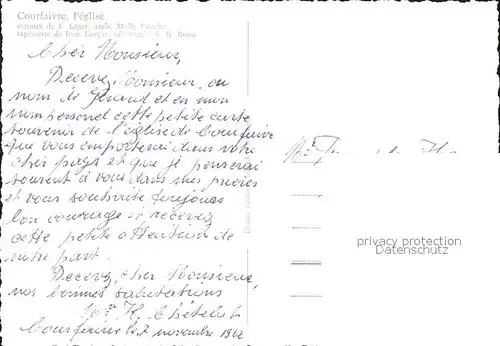 Courfaivre, l'église
vitraux de F. Léger, arch. Mlle Porche
tapisserie de Jean Lurçat, tabernacle de R. Rossi
Cher Monsieur,
Recevez, Monsieur, au
nom de Gérard et en mon
nom personel cette petite carte
souvenir de l'église de Courfaivre
que vous emporterai dans votre
cher pays et que je penserai
souvent à vous dans mes prières
et vous souhaite toujours
bon courage si recevez
cette petite attention de
notre part.
Recevez, cher Monsieur,
nos bonnes salutations
H. Chételat
Courfaivre le 7 novembre 1962
privacy protection
Datenschutz